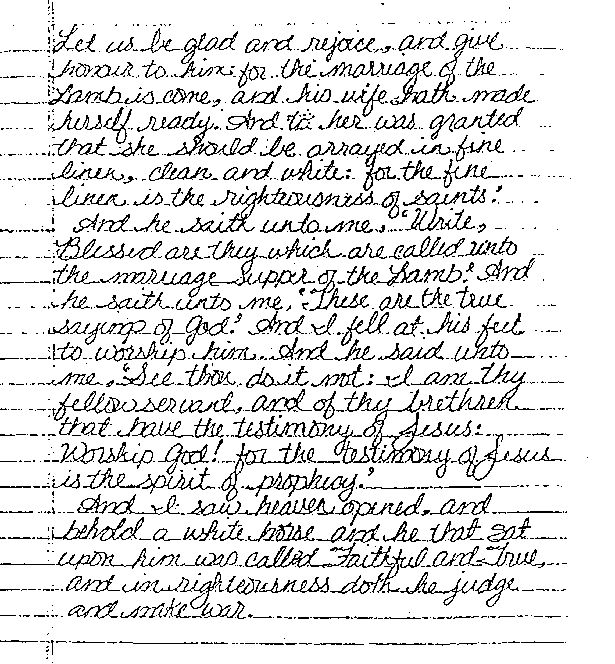 Let us be glad and rejoice, and give
honour to him: for the marriage of the
Lamb is come, and his wife hath made
herself ready. And to her was granted
that she should be arrayed in fine
linen, clean and white: for the fine
linen is the righteousness of saints."
And he saith unto me, "Write,
Blessed are they which are called unto
the marriage supper of the Lamb." And
he saith unto me, "These are the true
sayings of God." And I fell at his feet
to worship him. And he said unto
me, "See thou do it not: I am thy
fellow servant, and of thy brethren
that have the testimony of Jesus:
Worship God! for the testimony of Jesus
is the spirit of prophecy."
And I saw heaven opened, and
behold a white horse and he that sat
upon him was called Faithful and True,
and in righteousness doth he judge
and make war.